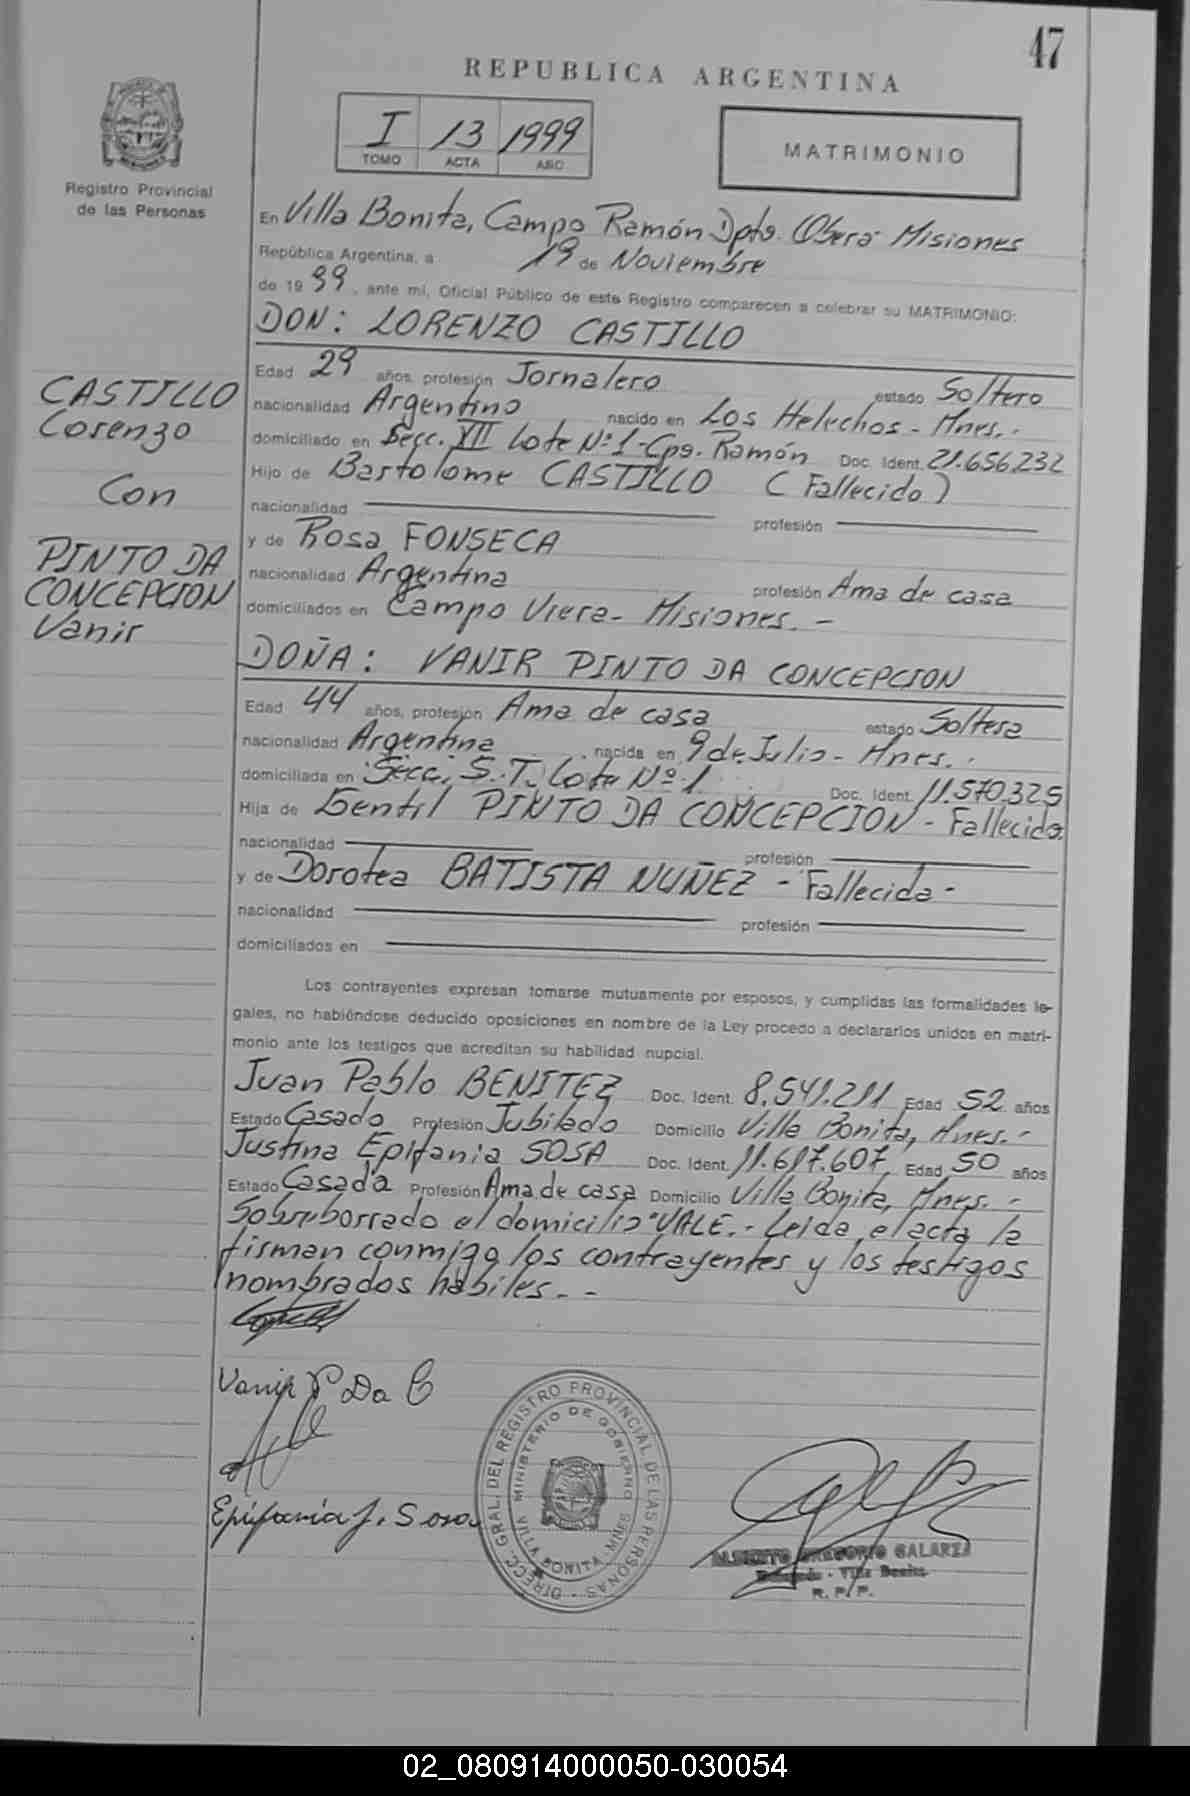 47
REPUBLICA ARGENTINA
I 13 1999
TOMO ACTA AÑO
MATRIMONIO
Registro Provincial
de las Personas
En Villa Bonita, Campo Ramón Dpto. Oberá Misiones
República Argentina, a 19 de Noviembre
de 1999, ante mi, Oficial Público de este Registro comparecen a celebrar su MATRIMONIO:
DON: LORENZO CASTILLO
Edad 29 años, profesión Jornalero estado Soltero
nacionalidad Argentino nacido en Los Helechos - Mnes. -
domiciliado en Secc. XII Lote Nº 1 - Cpo. Ramón Doc. Ident. 21.656.232
Hijo de Bartolome CASTILLO (Fallecido)
nacionalidad profesión
y de Rosa FONSECA
nacionalidad Argentina profesión Ama de casa
domiciliados en Campo Viera - Misiones. -
CASTILLO
Lorenzo
Con
PINTO DA
CONCEPCION
Vanir
DOÑA: VANIR PINTO DA CONCEPCION
Edad 44 años, profesión Ama de casa estado Soltera
nacionalidad Argentina nacida en 9 de Julio - Mnes. -
domiciliada en Secc. S. T. Lote Nº 1 Doc. Ident. 11.570.325
Hija de Gentil PINTO DA CONCEPCION - Fallecido
nacionalidad profesión
y de Dorotea BATISTA NUÑEZ - Fallecida -
nacionalidad profesión
domiciliados en
Los contrayentes expresan tomarse mutuamente por esposos, y cumplidas las formalidades le-
gales, no habiéndose deducido oposiciones en nombre de la Ley procedo a declararlos unidos en matri-
monio ante los testigos que acreditan su habilidad nupcial.
Juan Pablo BENITEZ Doc. Ident. 8.541.211 Edad 52 años
Estado Casado Profesión Jubilado Domicilio Villa Bonita, Mnes. -
Justina Epifania SOSA Doc. Ident. 11.617.607 Edad 50 años
Estado Casada Profesión Ama de casa Domicilio Villa Bonita, Mnes. -
Sobreborrado el domicilio "VALE. - Leida el acta la
firman conmigo los contrayentes y los testigos
nombrados hábiles. - -
Vanir P Da C
Epifania J. Sosa
DIRECC. GRAL. DEL REGISTRO PROVINCIAL DE LAS PERSONAS
MINISTERIO DE GOBIERNO
VILLA BONITA MNES
ALBERTO GREGORIO GALARZA
Delegado - Villa Bonita
R. P. P.
02_080914000050-030054